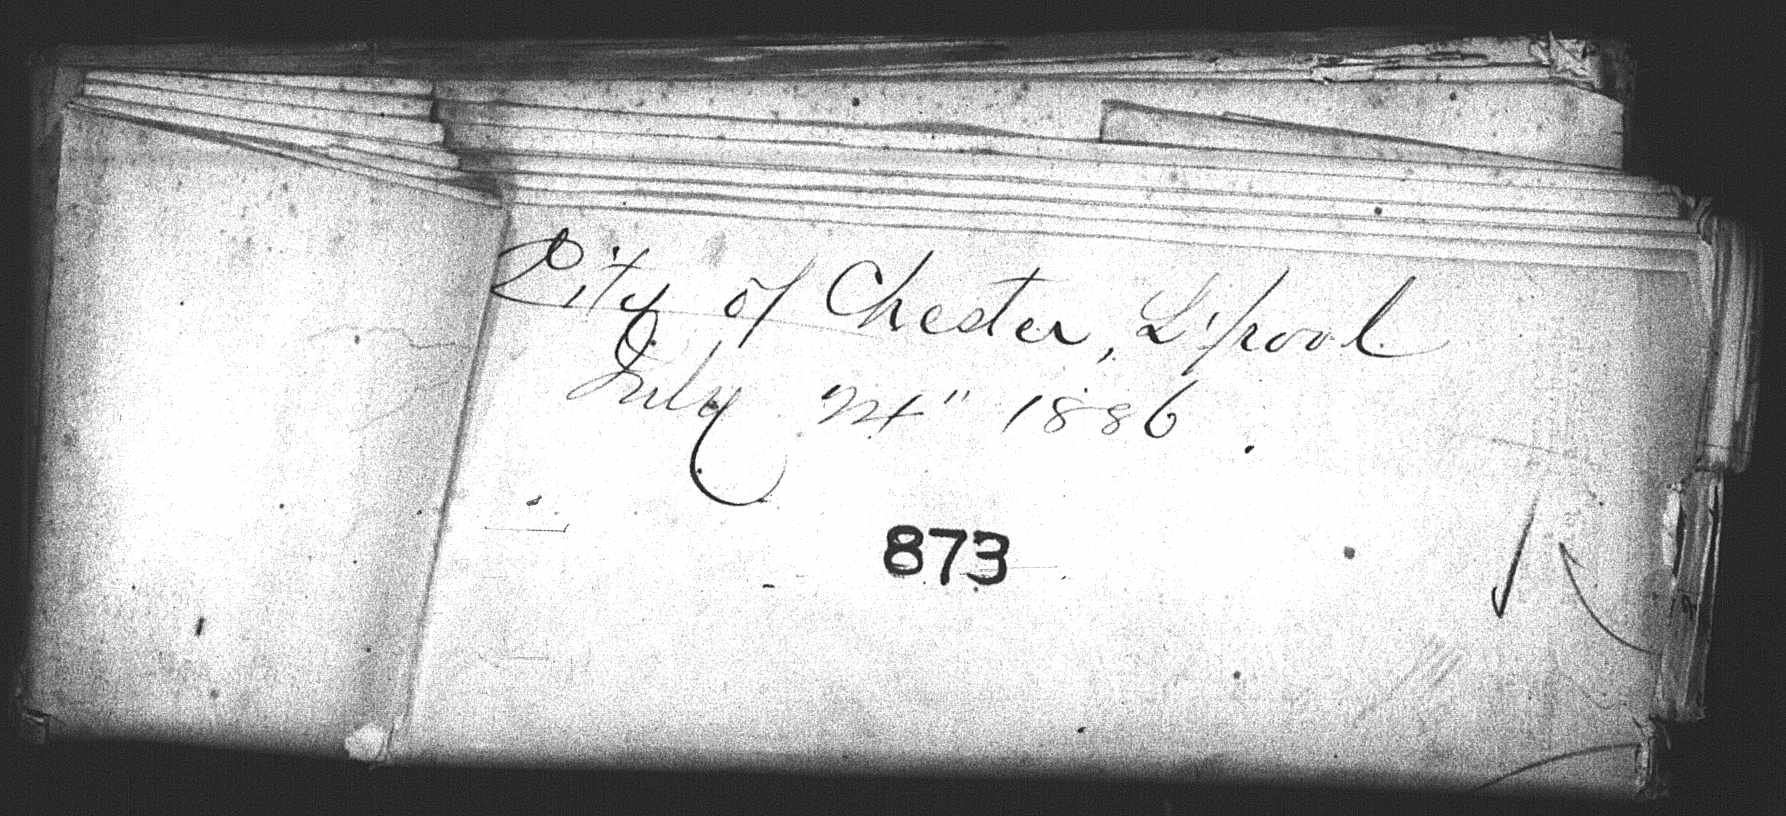 City of Chester, L'pool
July 24" 1886.
873